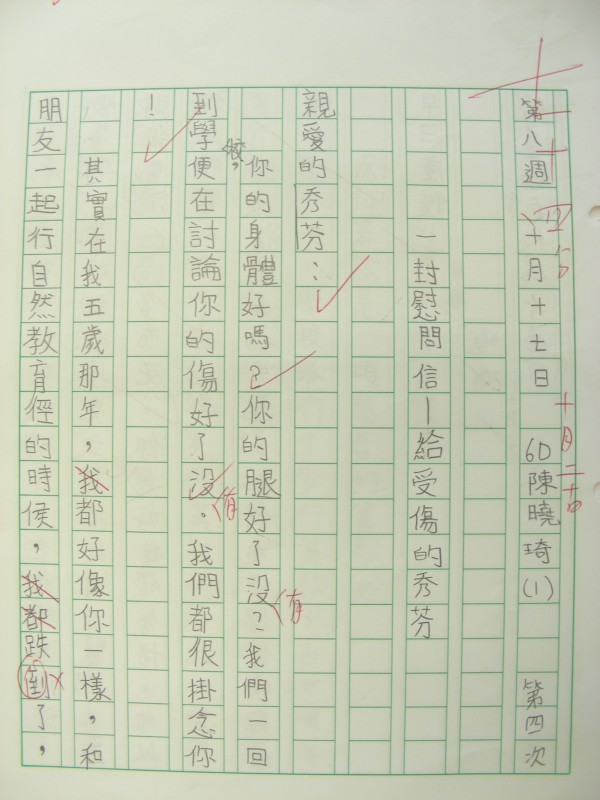 第八週 十月十七日 6D陳曉琦(1) 第四次
十月二十四
一封慰問信—給受傷的秀芬
親愛的秀芬：
你的身體好嗎？你的腿好了沒有？我們一回
到學校，便在討論你的傷好了沒有。我們都很掛念你
！
其實在我五歲那年，我都好像你一樣，和
朋友一起行自然教育徑的時侯，我都跌倒了，